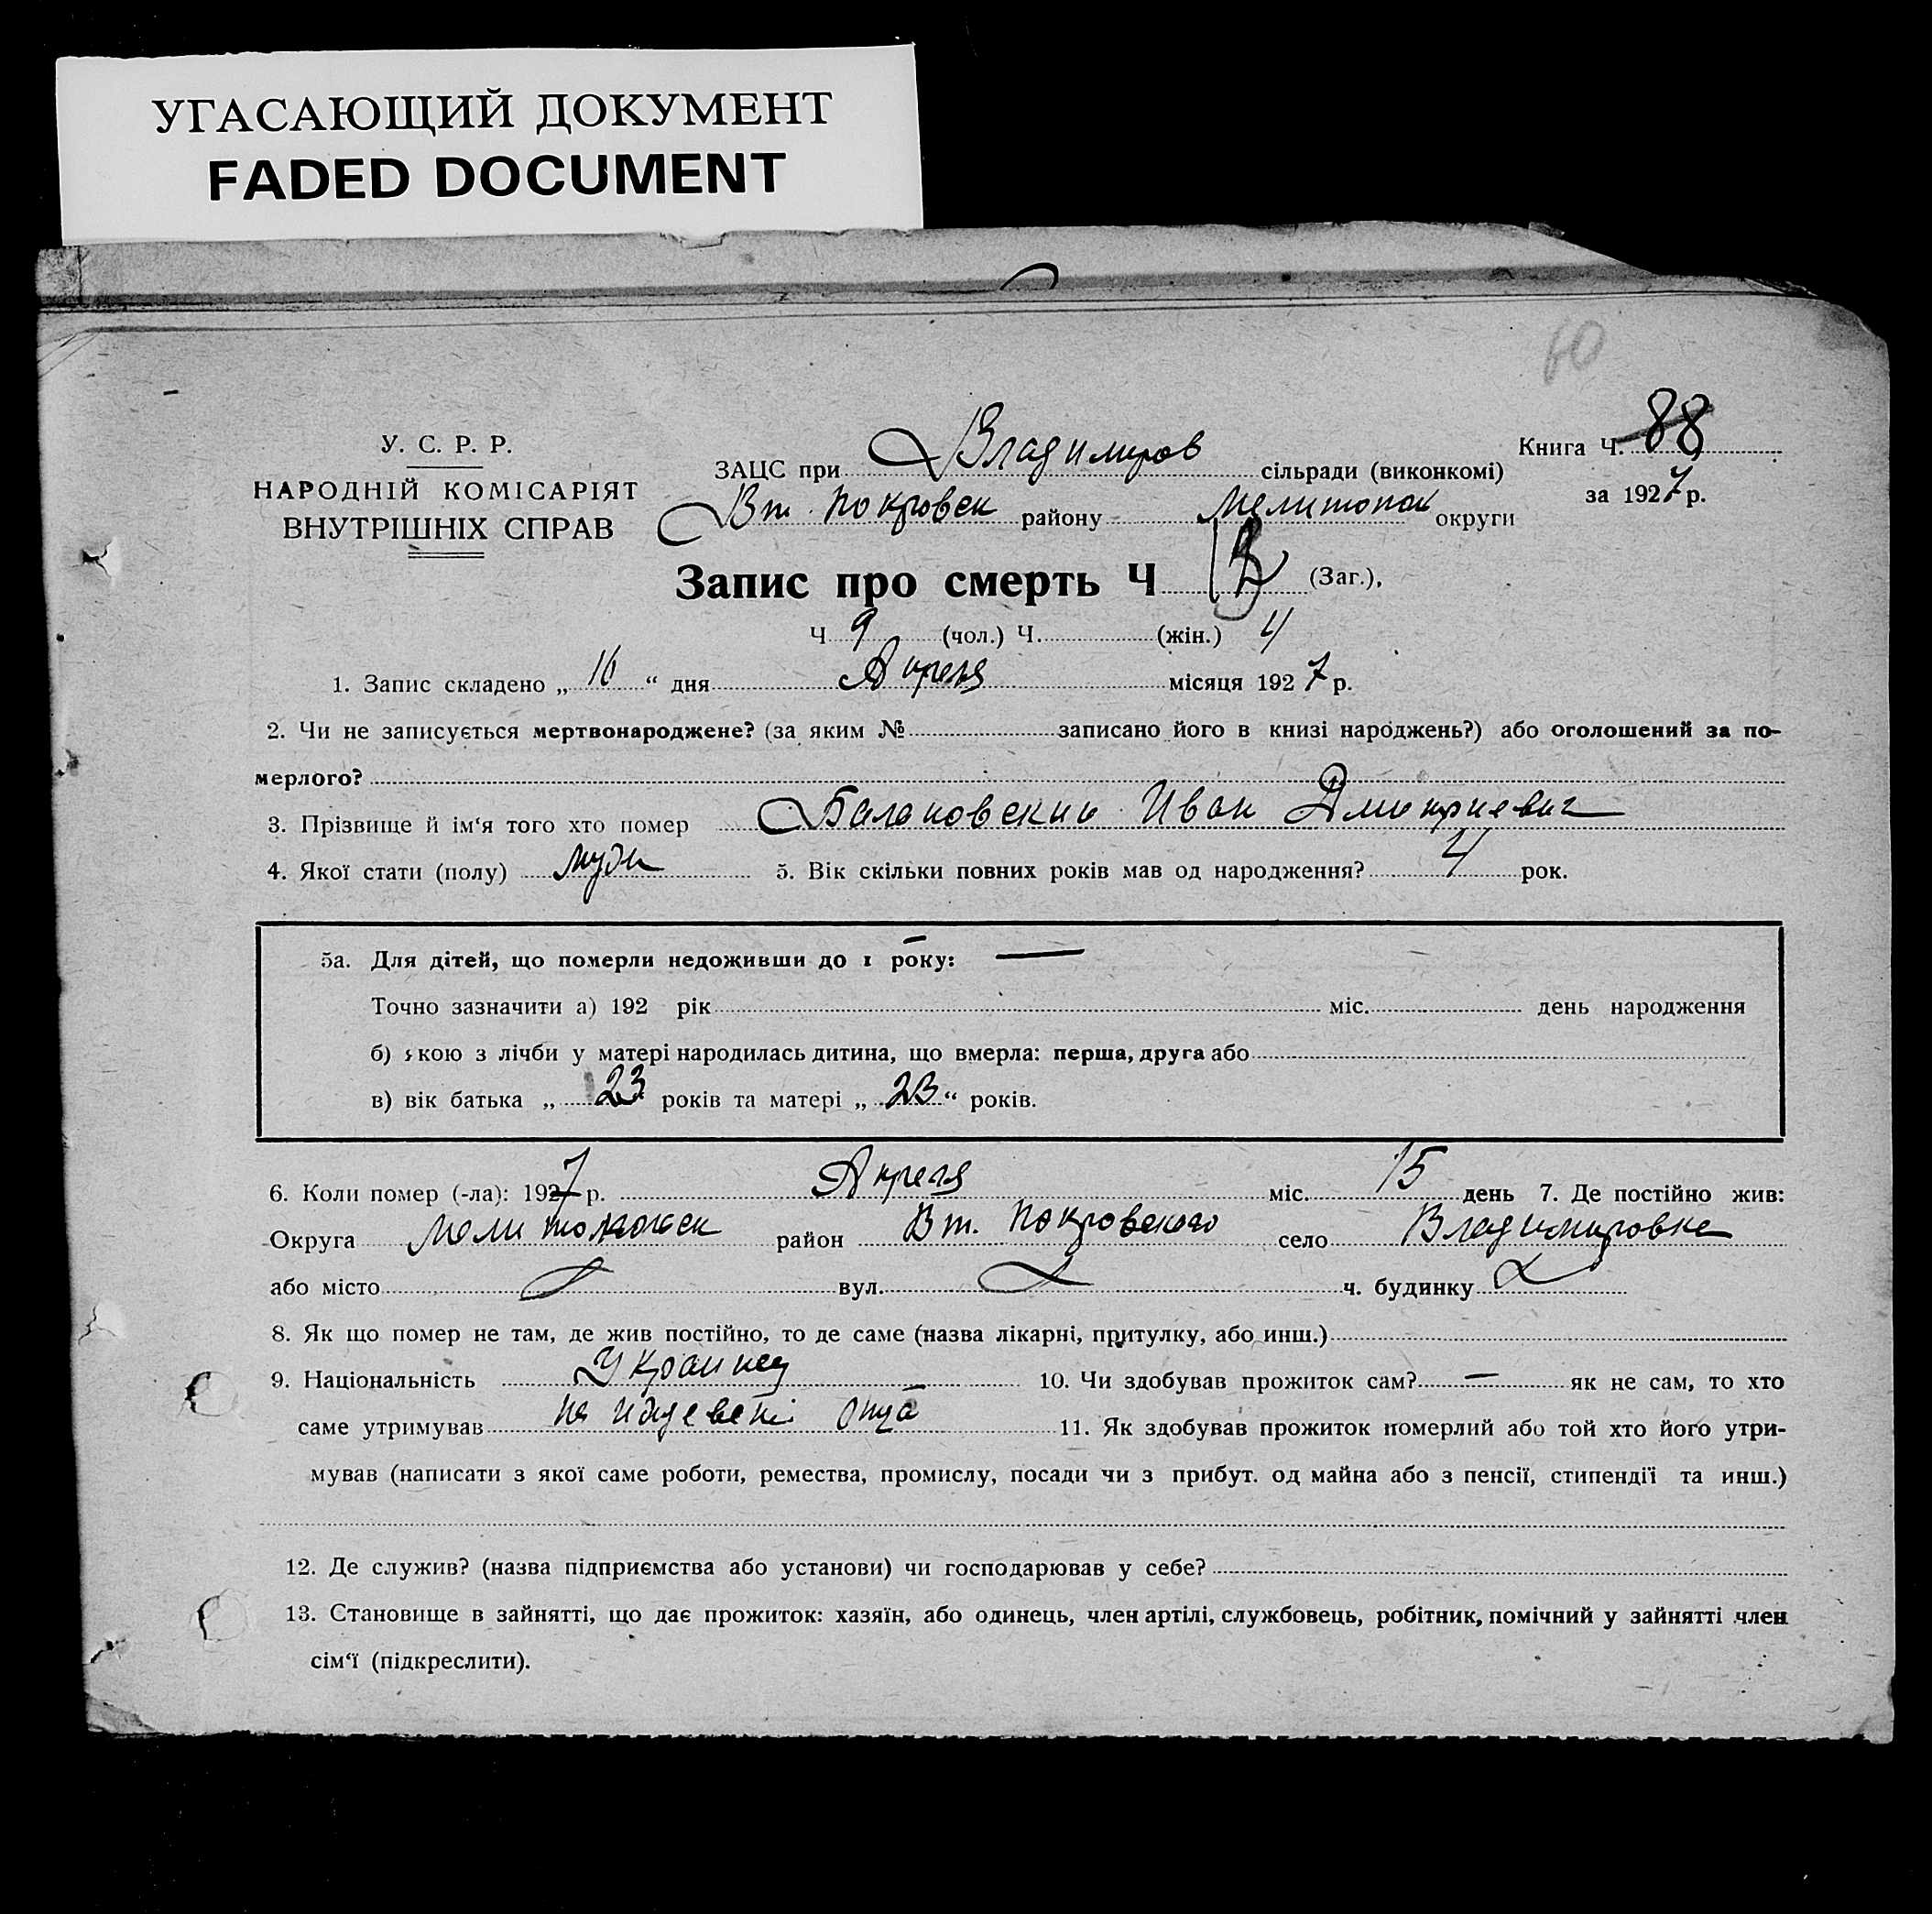 УГАСАЮЩИЙ ДОКУМЕНТ
FADED DOCUMENT
60
У. С. Р. Р.
НАРОДНІЙ КОМІСАРІЯТ
ВНУТРІШНІХ СПРАВ
Книга Ч. 88
за 1927 р.
ЗАЦС при Владимиров сільради (виконкомі)
Вт. Покровск району Мелитопол округи
Запис про смерть Ч (Заг.),
Ч 9 (чол.) Ч. (жін.) 4
1. Запис складено „ 16 “ дня Апреля місяця 1927 р.
2. Чи не записується мертвонароджене? (за яким № записано його в книзі народжень?) або оголошений за по-
мерлого?
3. Прізвище й ім‘я того хто помер Балановский Иван Дмитриевич
4. Якої стати (полу) муж 5. Вік скільки повних років мав од народження? 4 рок.
5а. Для дітей, що померли недоживши до 1 року: —
Точно зазначити а) 192 рік міс. день народження
б) якою з лічби у матері народилась дитина, що вмерла: перша, друга або
в) вік батька „ 23 років та матері „ 23 “ років.
6. Коли помер (-ла): 1927 р. Апреля міс. 15 день 7. Де постійно жив:
Округа район Вт. Покровского село Владимировка
або місто вул. ч. будинку
8. Як що помер не там, де жив постійно, то де саме (назва лікарні, притулку, або инш.)
9. Національність Украинец 10. Чи здобував прожиток сам? — як не сам, то хто
саме утримував на отца 11. Як здобував прожиток померлий або той хто його утри-
мував (написати з якої саме роботи, ремества, промислу, посади чи з прибут. од майна або з пенсії, стипендії та инш.)
12. Де служив? (назва підприємства або установи) чи господарював у себе?
13. Становище в зайнятті, що дає прожиток: хазяїн, або одинець, член артілі, службовець, робітник, помічний у зайнятті член
сім‘ї (підкреслити).